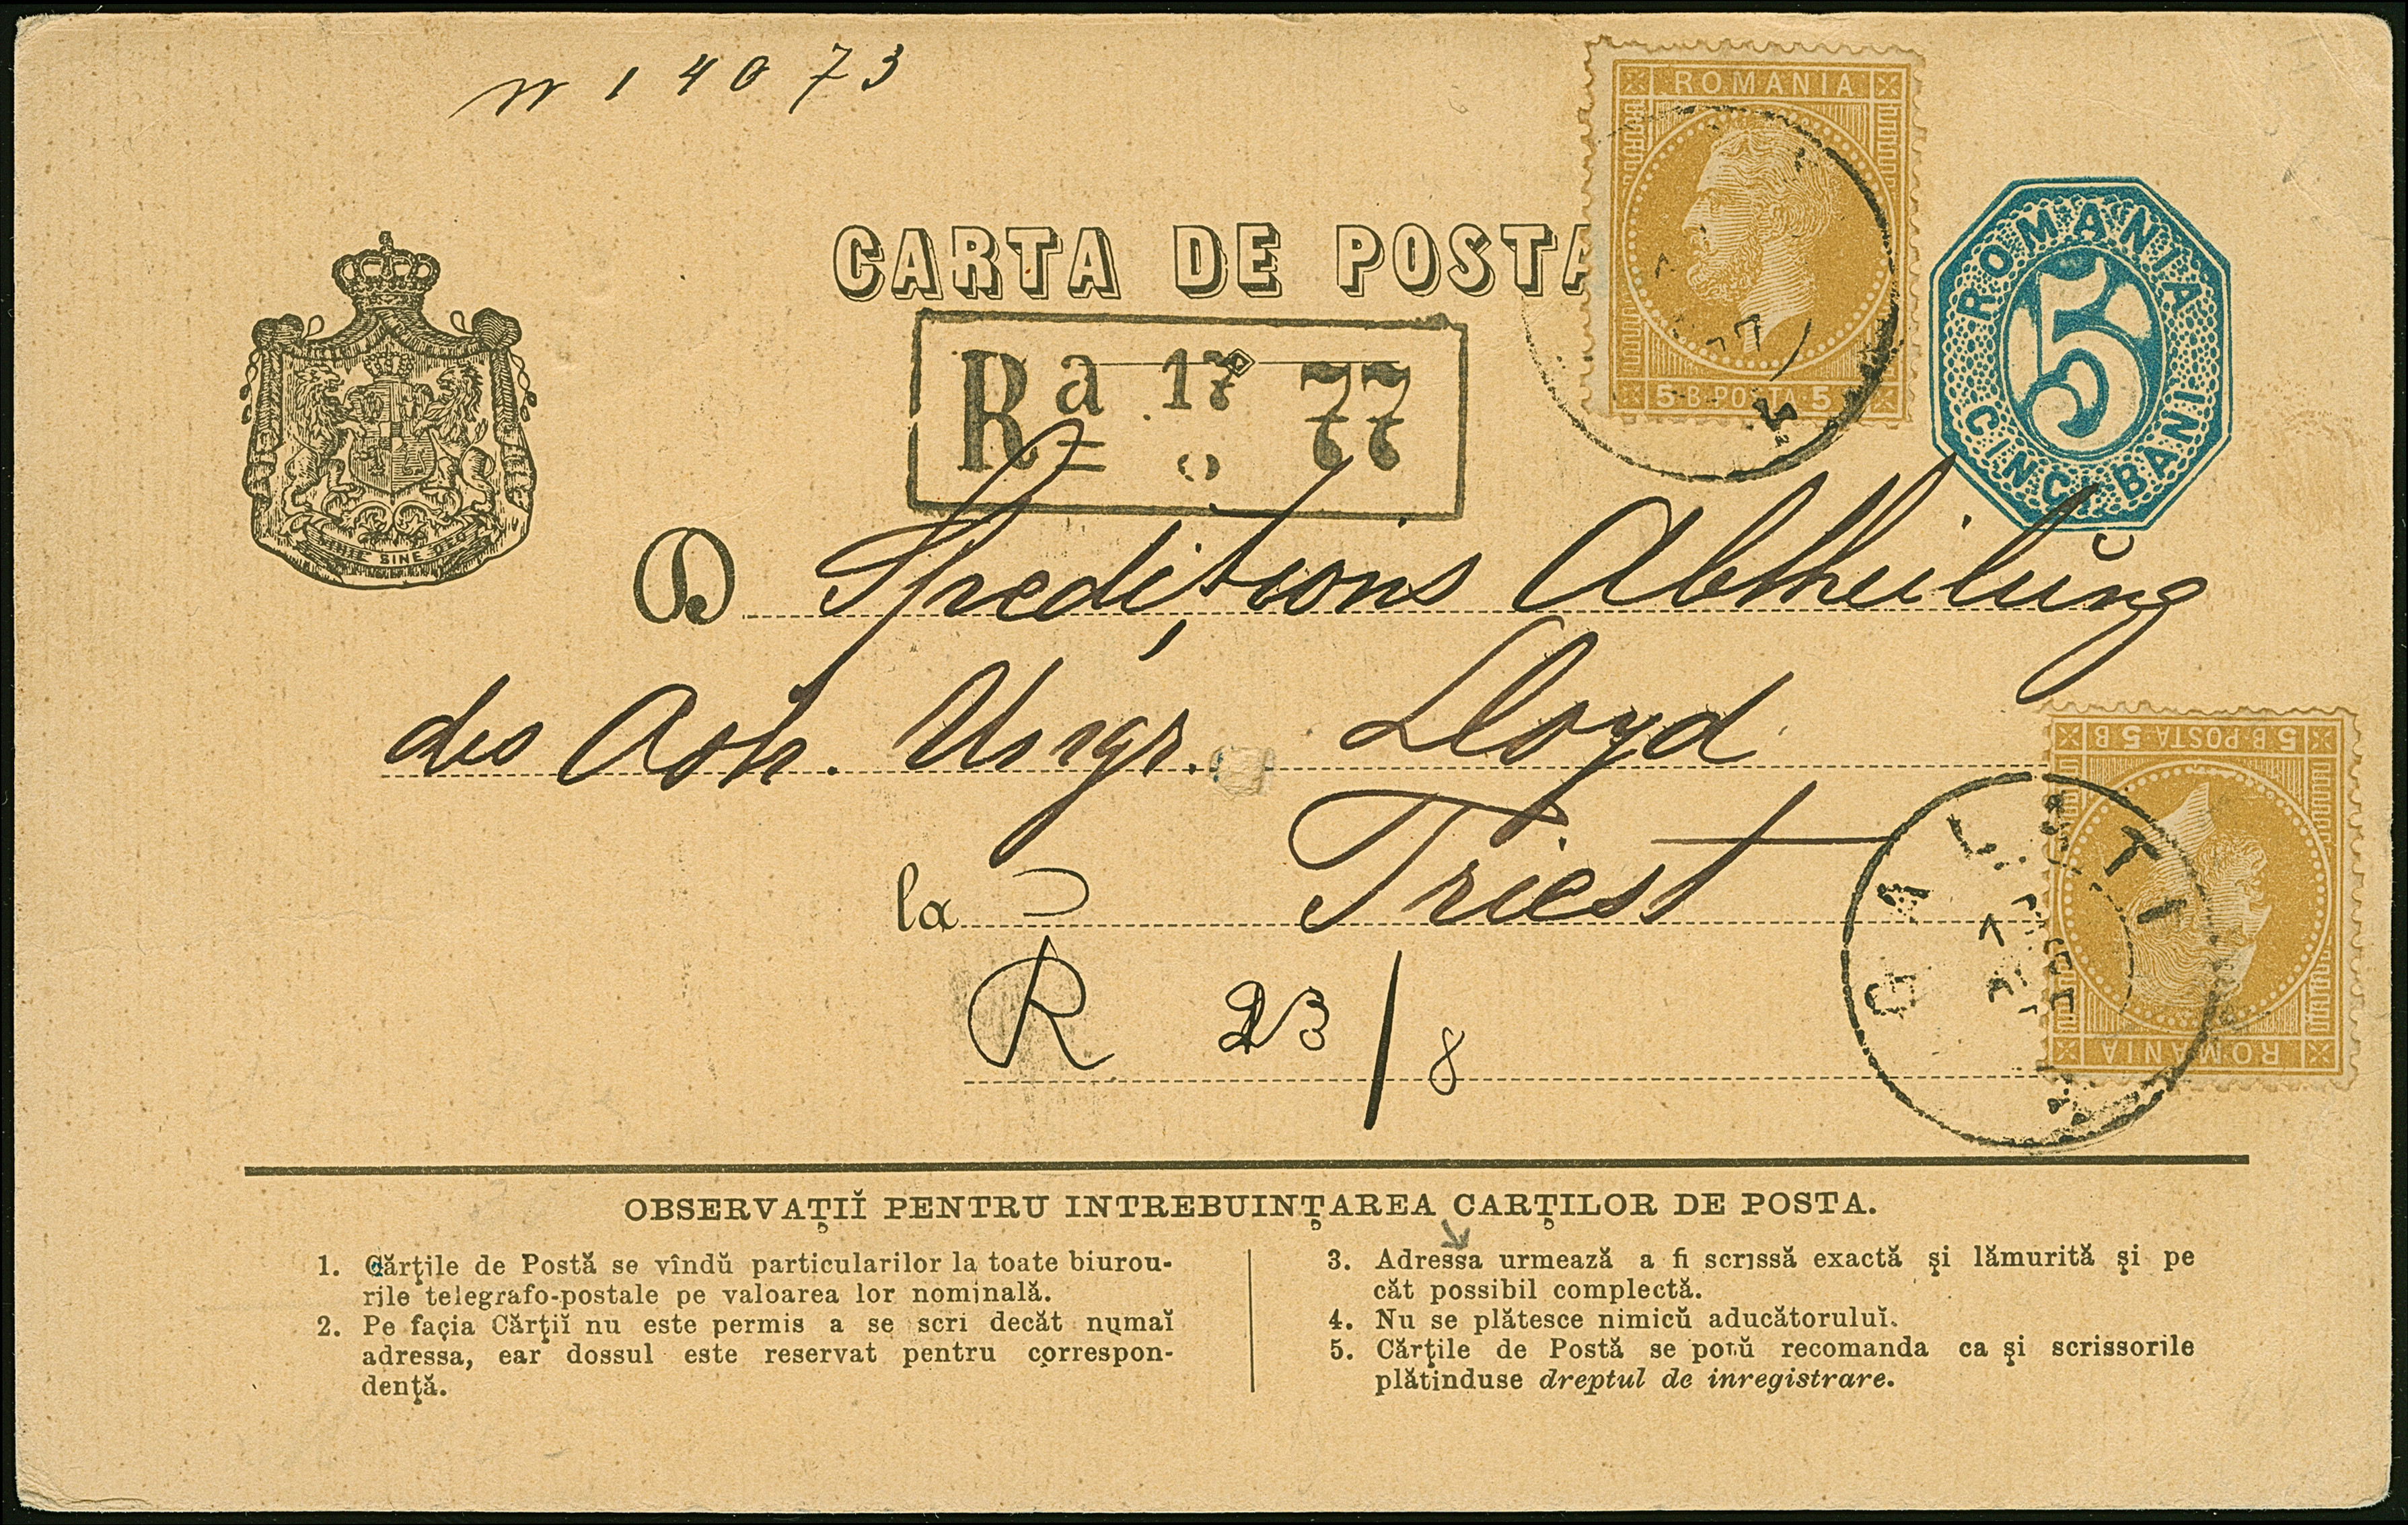 N 1 4 0 7 3
CARTA DE POSTA
ROMANIA
5·B·POSTA·5
ROMANIA
5
CINCI BANI
Ra 17 77
NIHIL SINE DEO
D Spedițions Abtheilung
des Östr. Ungr. Lloyd
la Triest
R 23/8
5·B·POSTA·5 B
ROMANIA
GALATI
OBSERVAȚIĬ PENTRU INTREBUINȚAREA CARȚILOR DE POSTA.
1. Cărțile de Postă se vîndŭ particularilor la toate biurou-
rile telegrafo-postale pe valoarea lor nominală.
2. Pe facia Cărțiĭ nu este permis a se scri decăt numaĭ
adressa, ear dossul este reservat pentru correspon-
dență.
3. Adressa urmează a fi scrissă exactă și lămurită și pe
căt possibil complectă.
4. Nu se plătesce nimicŭ aducătoruluĭ.
5. Cărțile de Postă se potŭ recomanda ca și scrissorile
plătinduse dreptul de inregistrare.